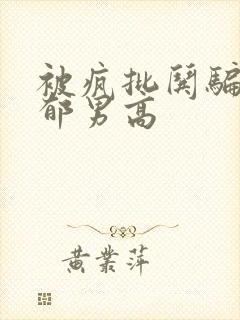 被疯批闺骗
郁男高
黄业萍